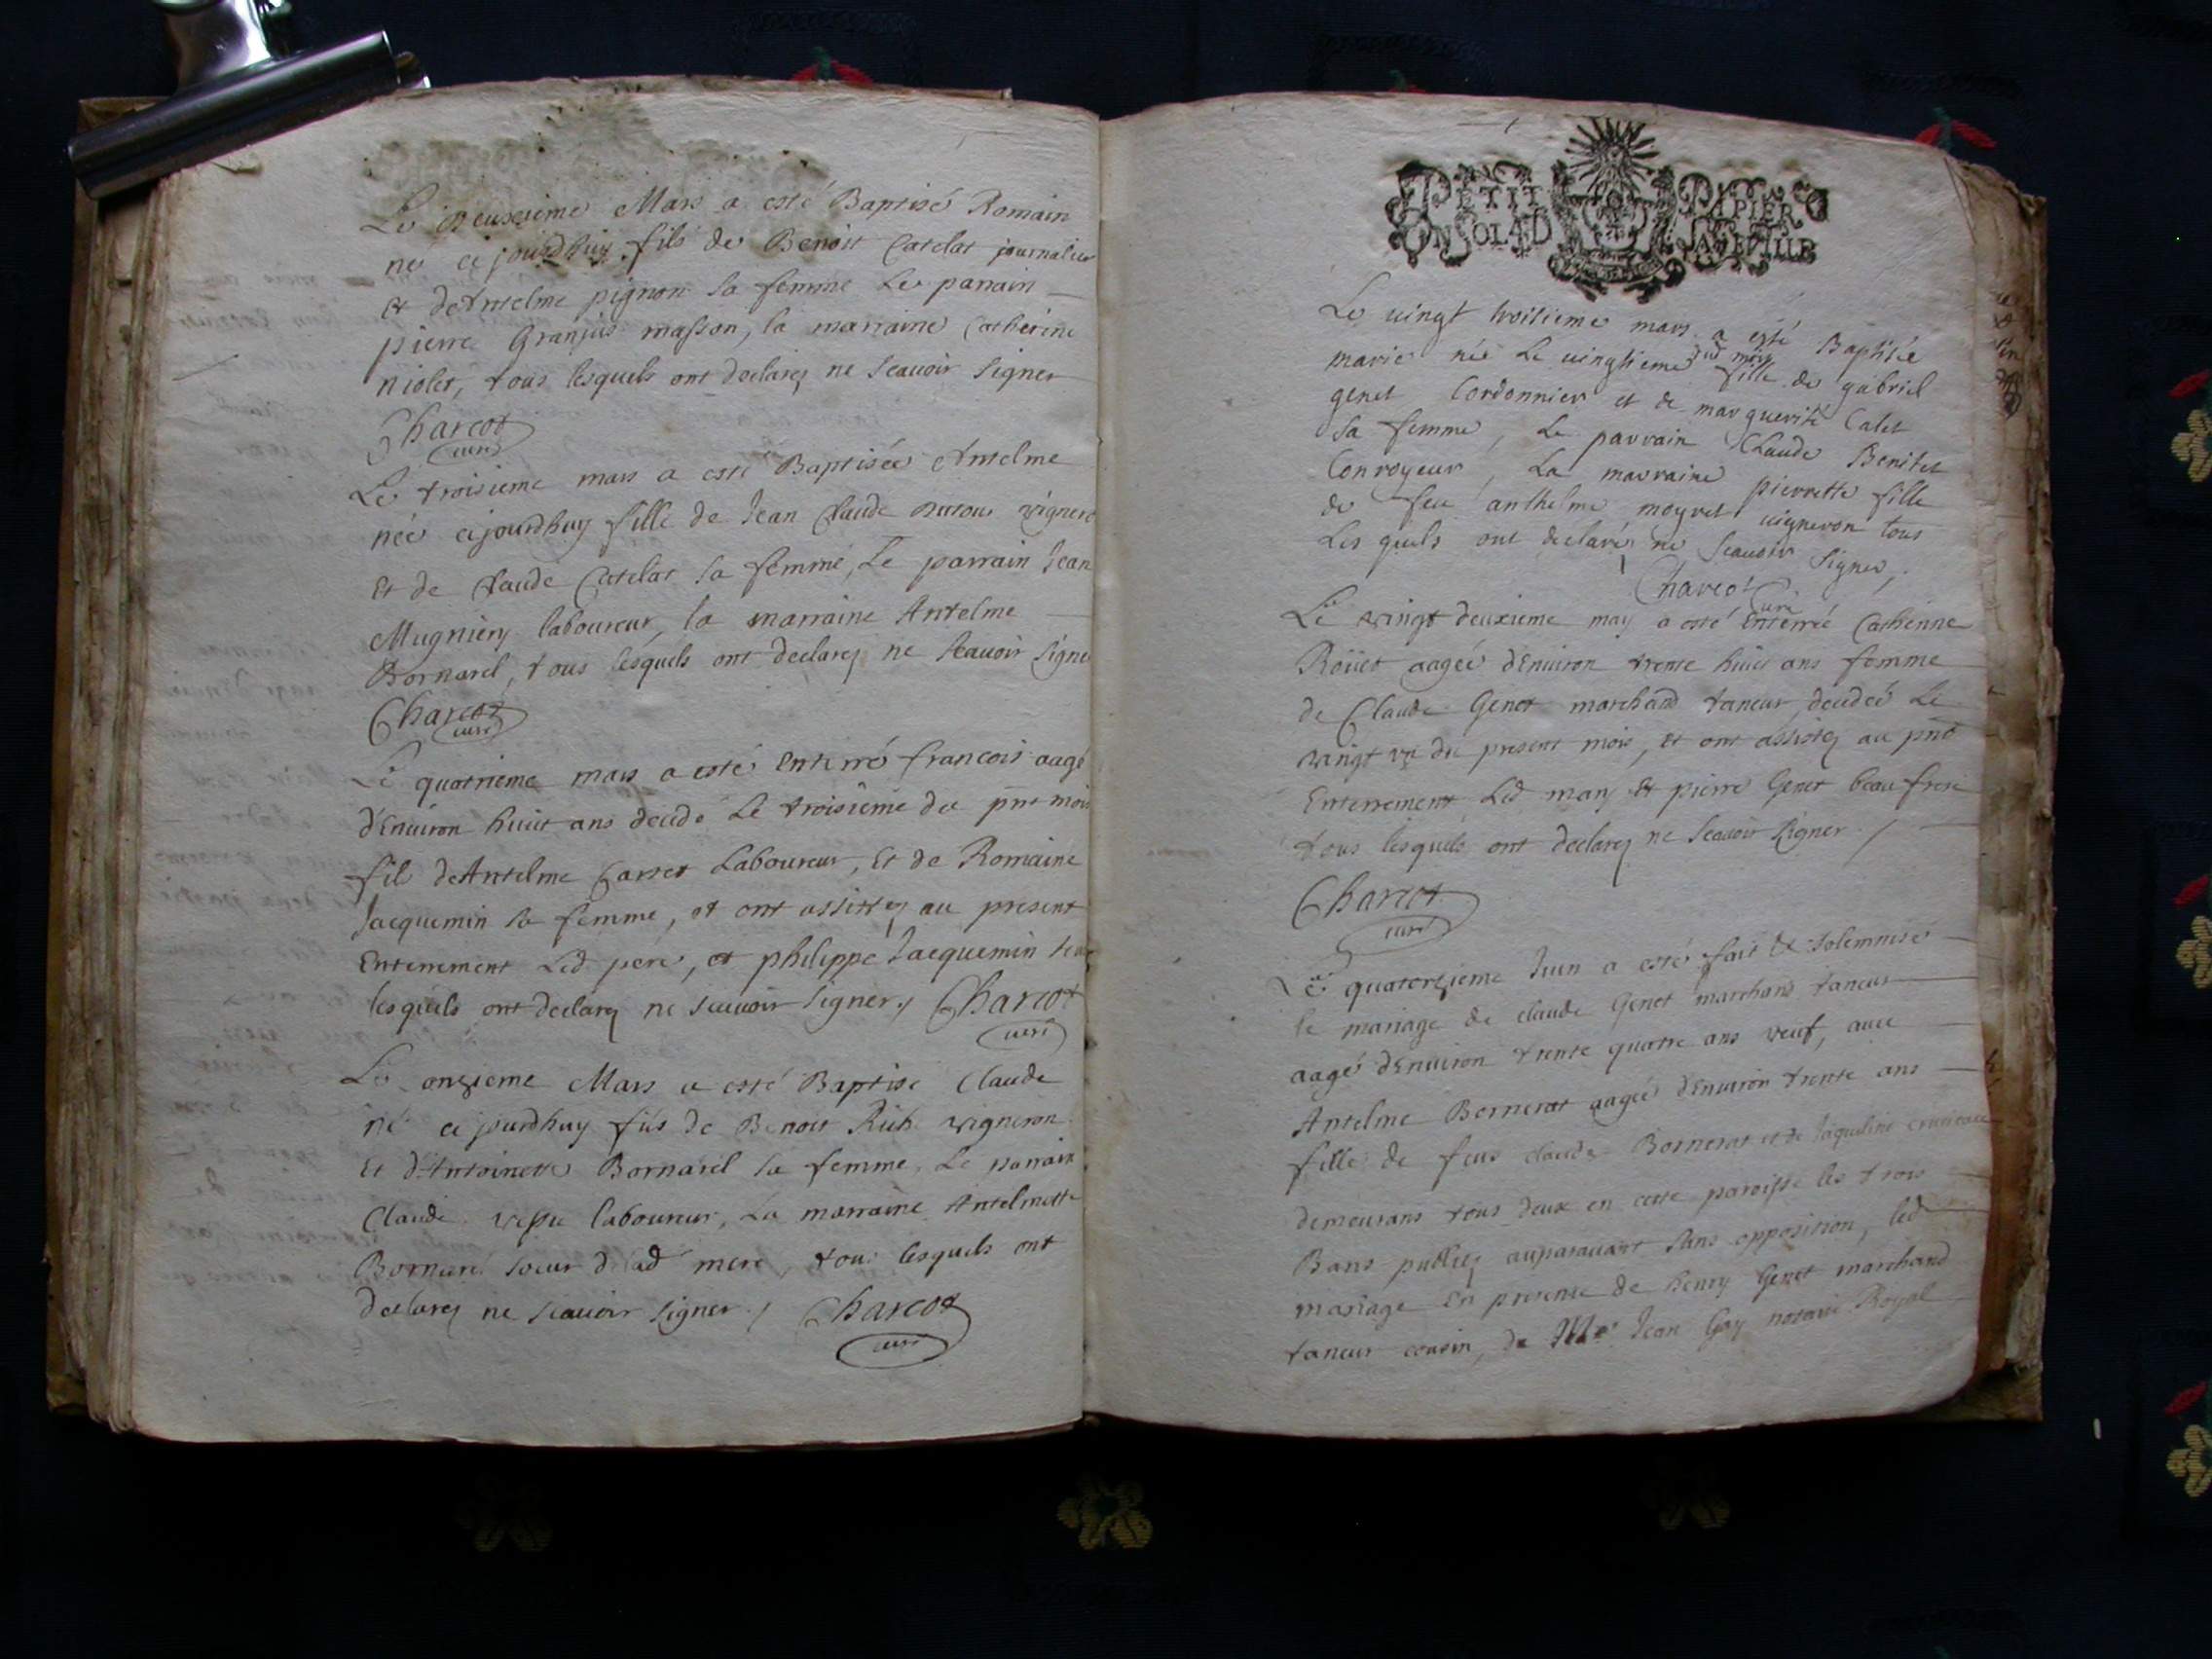 Le Deuxieme Mars a esté Baptisé Romain
né cejourdhuy fils de Benoit Catelat journalier
et deAntelme pignon sa femme Le parrain
pierre Granjus masson, la marraine Catherine
niolet, tous lesquels ont declarez ne scauoir signer
Charcot
curé
Le troisieme mars a esté Baptisée Antelme
née cejourdhuy fille de Jean Claude vigneron
Et de Claude Catelat sa femme, Le parrain Jean
Mugniery laboureur, la marraine Antelme
Bornarel, tous lesquels ont declarez ne scauoir signe
Charcot
curé
Le quatrieme mars a esté Enterré francois aagé
d'Enuiron huict ans decedé Le troisieme du pnt mois
fils deAntelme Carret Laboureur, Et de Romaine
Jacquemin sa femme, et ont assistez au present
Enterrement Led. pere, et philippe Jacquemin
lesquels ont declarez ne scauoir signer, Charcot
curé
Le onzieme Mars a esté Baptisé Claude
né cejourdhuy fils de Benoit Rich vigneron
Et d'Antoinette Bornarel sa femme, Le parrain
Claude laboureur, La marraine Antelmette
soeur de lad mere, tous lesquels ont
declarez ne scauoir signer, Charcot
curé
PETIT PAPIER
UN SOL 4 D LA FEUILLE
Le uingt troisieme mars a esté Baptisée
marie née Le uingtieme dud mois fille de gabriel
genet Cordonnier et de marguerite Calet
sa femme, Le parrain Claude Benitet
Conroyeur, La marraine pierrette fille
de feu anthelme moyret uigneron tous
Les quels ont declaré ne scauoir signer,
Charcot
curé
Le vingt deuxieme may a esté Enterrée Catherine
Roüet aagée d'Enuiron trente huict ans femme
de Claude Genet marchand taneur, decedée Le
vingt vn du present mois, Et ont assistez au pnt
Enterrement Led mary Et pierre Genet beau frere
tous lesquels ont declarez ne scauoir signer. /
Charcot
curé
Le quatorzieme Juin a esté fait & solemnisé
le mariage de claude Genet marchand taneur
aagé d'Enuiron trente quatre ans veuf, auec
Antelme Bornerat aagée d'Enuiron trente ans
fille de feus claude Bornerat et de Jaqueline
demeurans tous deux en cette paroisse les trois
Bans publiez auparauant sans opposition, led
mariage En presence de henry Genet marchand
taneur cousin, de Me Jean Gay notaire Royal